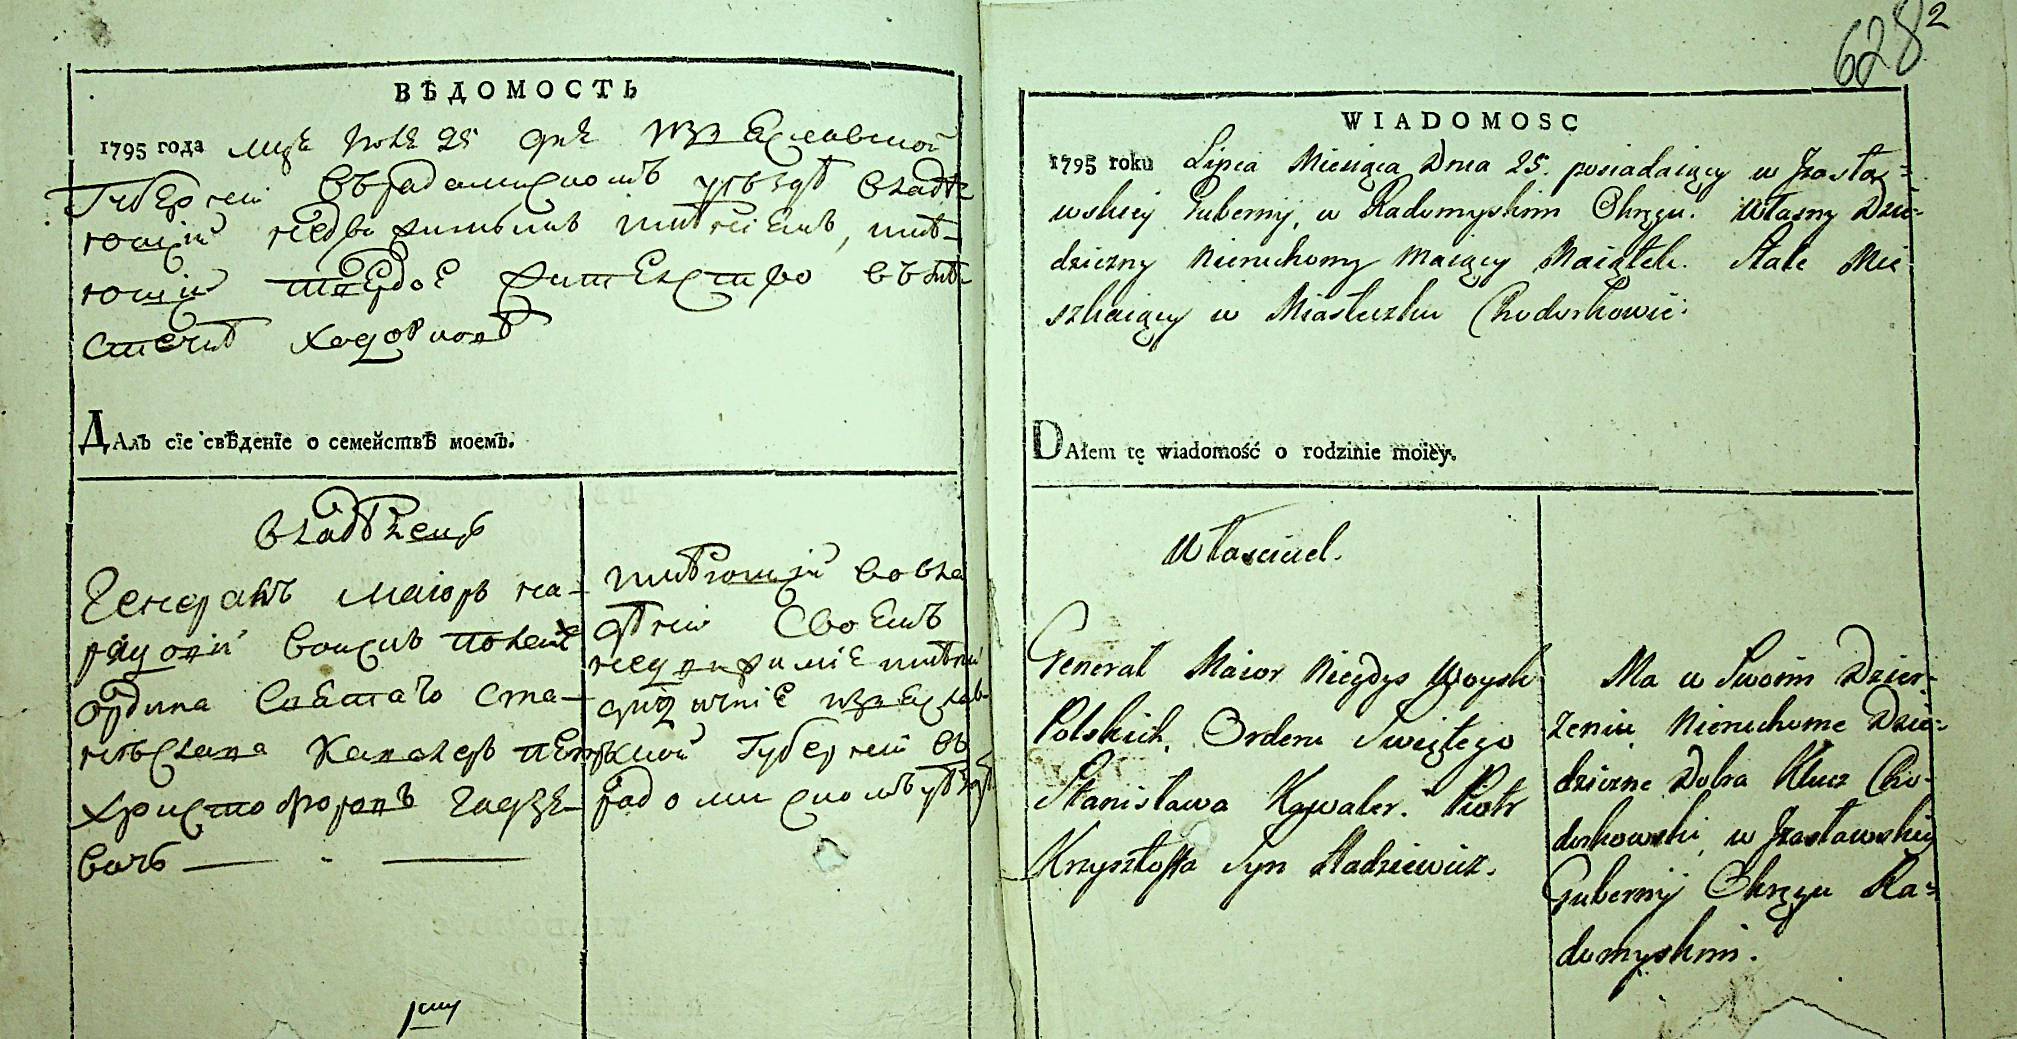 ВѢДОМОСТЬ
1795 года мцa Июля 25 дня Изяславской
Губернии въ радомысломъ уѣздѣ владѣ-
ющiй недвижимымъ имѣнiемъ, имѣ-
ющiй твердое жительство въ мѣ-
стечкѣ Ходорковѣ
ДАлъ сїе свѣденїе о семействѣ моемъ.
владѣлецъ
Генералъ маiоръ на-
ордина святаго ста-
нислава кавалеръ петръ
христофоровъ гадзе-
вичъ
имѣющiй во вла
дѣнiи своемъ
недвижимiе имѣнi
дидичнiе изяслав-
ской губернiи въ
радомыскомъ уѣздѣ
628 2
WIADOMOSC
1795 roku Lipca Miesiąca Dnia 25. posiadaiący w Jzasła-
wskiey Gubernij, w Radomyskim Okręgu. własny Dzie-
dziczny Nieruchomy Maiący Maiątek. Stałe Mie
szkaiący w Miasteczku Chodorkowie:
DAłem tę wiadomość o rodzinie moiey.
Właściciel.
Generał Maior Niegdys Woysk
Polskich, Orderu Swiętego
Stanisława Kawaler. Piotr
Krzysztoffa Syn Hadziewicz.
Ma w Swoim Dzier-
żeniu Nieruchome Dzie-
dziczne Dobra Klucz Cho-
dorkowski, w Jzasławskiey
Gubernij Okręgu Ra-
domyskim.